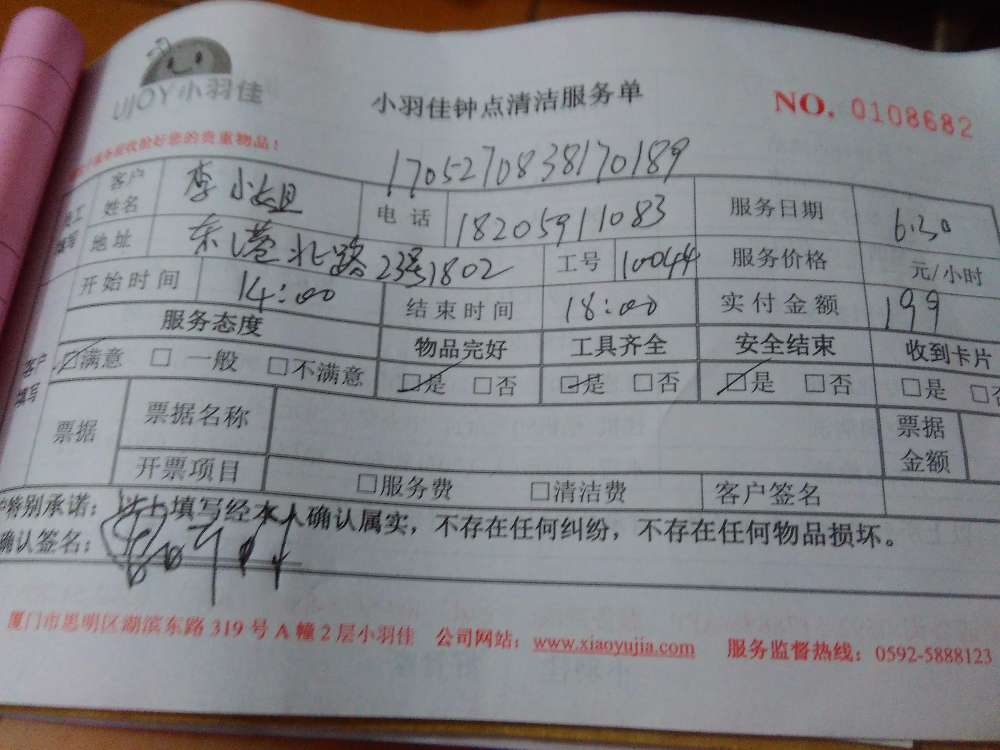 UJOY小羽佳
小羽佳钟点清洁服务单
NO. 0108682
收验好您的贵重物品！
1705270838170189
客户姓名 李小姐 电话 18205911083 服务日期 6.30
填写 地址 东港北路23号1802 工号 10044 服务价格 元/小时
开始时间 14:00 结束时间 18:00 实付金额 199
服务态度 物品完好 工具齐全 安全结束 收到卡片
客户填写 ☑满意 □ 一般 □不满意 ☑是 □否 ☑是 □否 ☑是 □否 □是 □否
票据 票据名称 票据金额
开票项目 □服务费 □清洁费 客户签名
特别承诺：以上填写经本人确认属实，不存在任何纠纷，不存在任何物品损坏。
确认签名：
厦门市思明区湖滨东路 319 号 A 幢 2 层小羽佳 公司网站：www.xiaoyujia.com 服务监督热线：0592-5888123